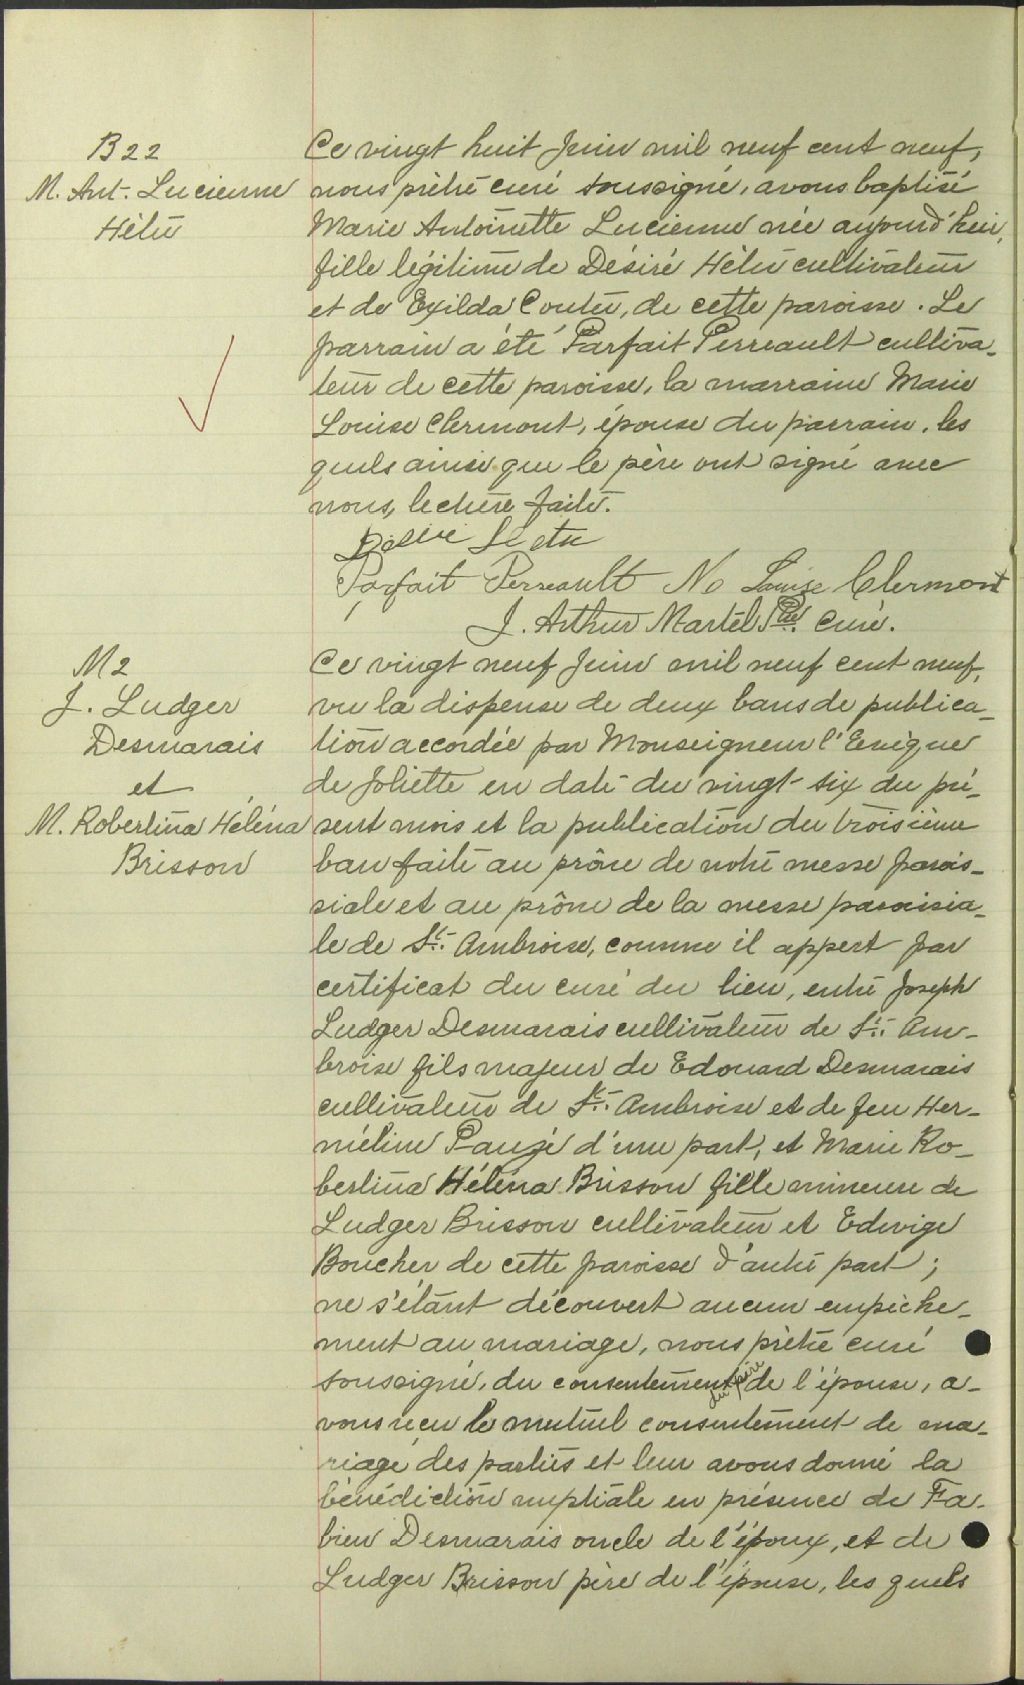 B 22
M. Ant. Lucienne
Hétu
Ce vingt huit Juin mil neuf cent neuf,
nous prêtre curé soussigné, avons baptisé
Marie Antoinette Lucienne née aujourd'hui,
fille légitime de Désiré Hétu cultivateur
et de Exilda Coutu, de cette paroisse. Le
parrain a été Parfait Perreault cultiva-
teur de cette paroisse, la marraine Marie
Louise Clermont, épouse du parrain, les
quels ainsi que le père ont signé avec
nous, lecture faite.
Parfait Perreault Louise Clermont
J. Arthur Martel Ptre. Curé.
M 2
J. Ludger
Desmarais
et
M. Robertina Héléna
Brisson
Ce vingt neuf Juin mil neuf cent neuf,
vu la dispense de deux bans de publica-
tion accordée par Monseigneur l'Evêque
de Joliette en date du vingt-six du pré-
sent mois et la publication du troisième
ban faite au prône de notre messe parois-
siale et au prône de la messe paroissia-
le de St. Ambroise, comme il appert par
certificat du curé du lieu, entre Joseph
Ludger Desmarais cultivateur de St. Am-
broise fils majeur de Edouard Desmarais
cultivateur de St. Ambroise et de feu Her-
méline Pauzé d'une part, et Marie Ro-
bertina Héléna Brisson fille mineure de
Ludger Brisson cultivateur et Edwige
Boucher de cette paroisse d'autre part;
ne s'étant découvert aucun empêche-
ment au mariage, nous prêtre curé
soussigné, du consentement du père de l'épouse, a-
vons reçu le mutuel consentement de ma-
riage des parties et leur avons donné la
bénédiction nuptiale en présence de Fa-
bien Desmarais oncle de l'époux, et de
Ludger Brisson père de l'épouse, les quels